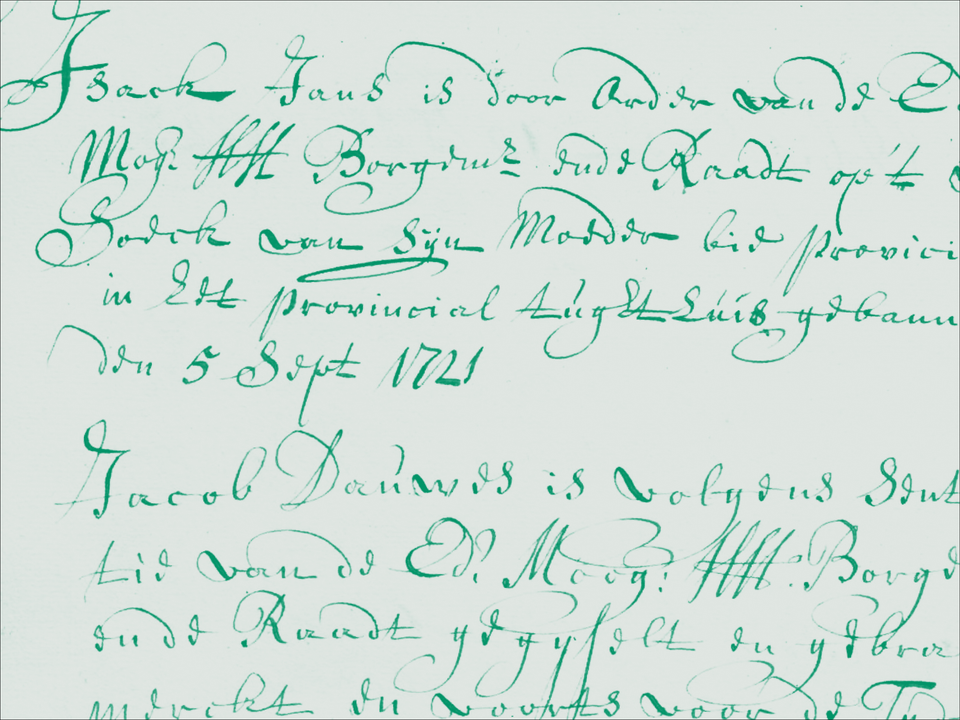 Isack Jans is door Order van de E
Mog: HHH Borgemr ende Raadt op't
Soeck van Sijn Moeder bie Provici
in Het provincial tught huis gebann
den 5 Sept 1721
Jacob Dauwes is volgens Sent
tie van de Ed. Moog: HHH: Borge
ende Raadt gegyselt en gebra
merckt en voorts voor de